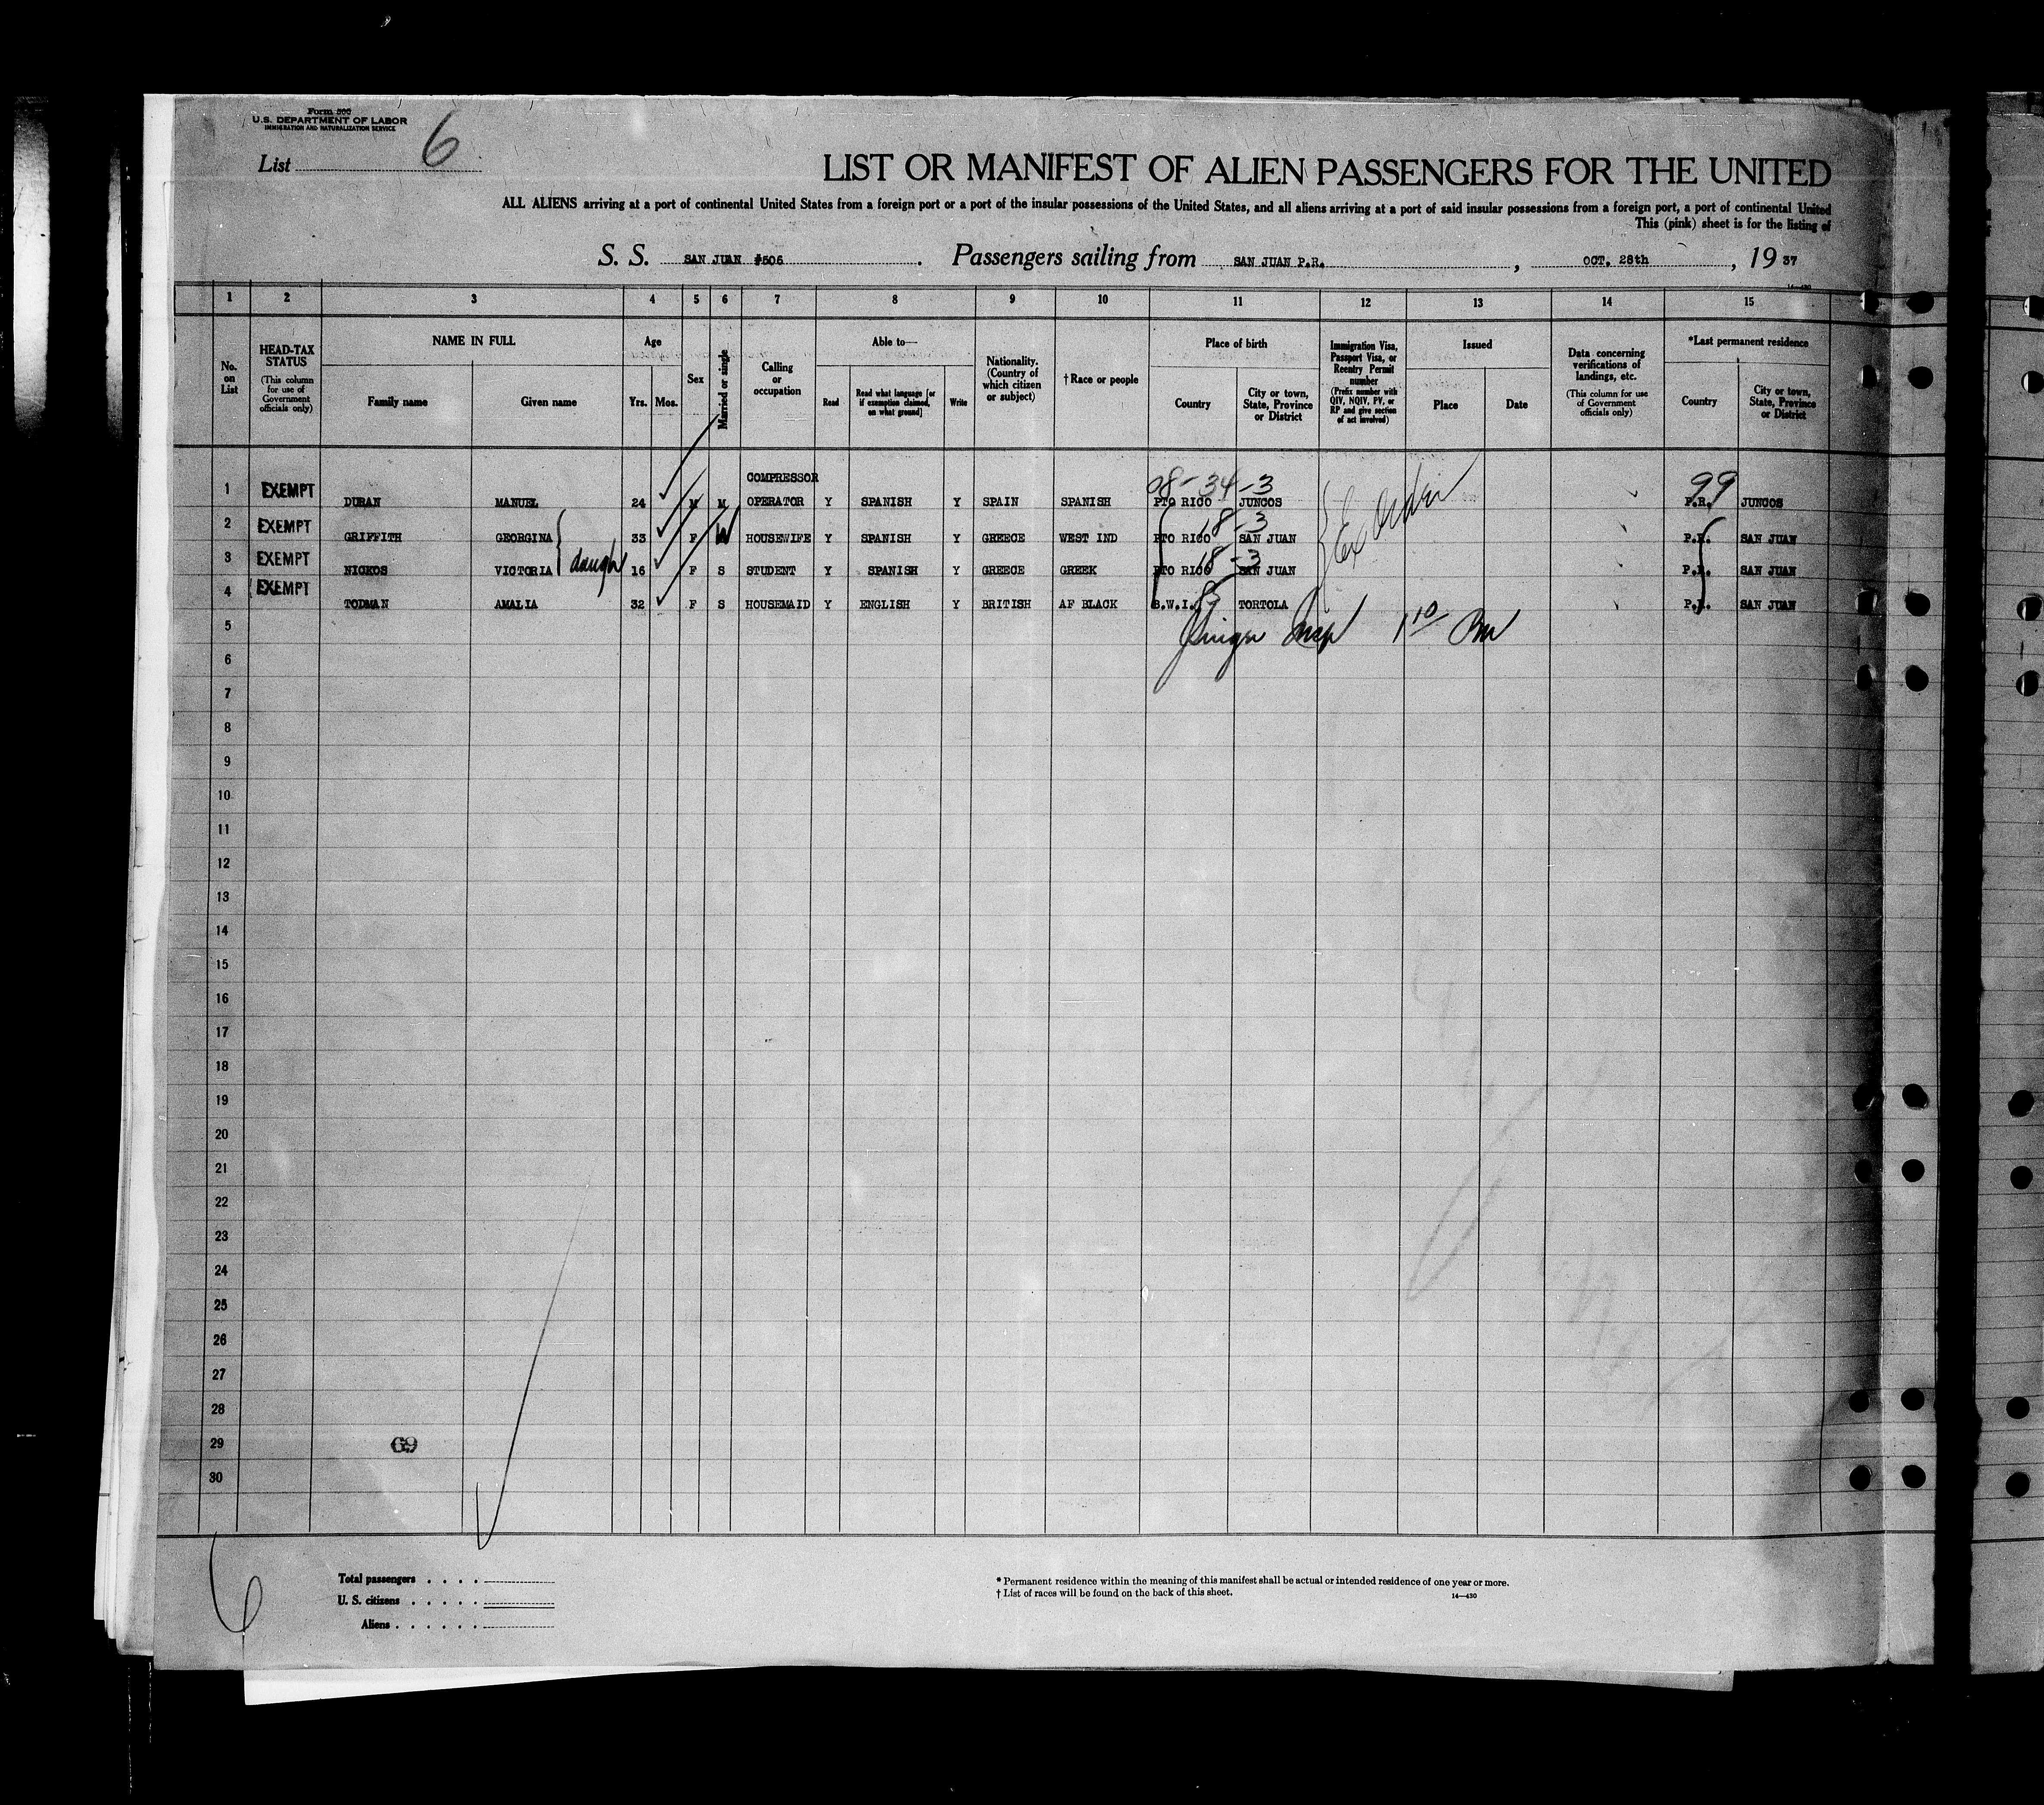 Form 500
U.S. DEPARTMENT OF LABOR
IMMIGRATION AND NATURALIZATION SERVICE
List 6
LIST OR MANIFEST OF ALIEN PASSENGERS FOR THE UNITED
ALL ALIENS arriving at a port of continental United States from a foreign port or a port of the insular possessions of the United States, and all aliens arriving at a port of said insular possessions from a foreign port, a port of continental United
This (pink) sheet is for the listing of
S. S. SAN JUAN #506. Passengers sailing from SAN JUAN P.R., OCT. 28th, 19 37
14—430
1 2 3 4 5 6 7 8 9 10 11 12 13 14 15
No. on List
HEAD-TAX STATUS (This column for use of Government officials only)
NAME IN FULL
Family name
Given name
Age
Yrs. Mos.
Sex
Married or single
Calling or occupation
Able to—
Read
Read what language [or if exemption claimed, on what ground]
Write
Nationality. (Country of which citizen or subject)
†Race or people
Place of birth
Country
City or town, State, Province or District
Immigration Visa, Passport Visa, or Reentry Permit number (Prefix number with QIV, NQIV, PV, or RP and give section of act involved)
Issued
Place
Date
Data concerning verifications of landings, etc. (This column for use of Government officials only)
*Last permanent residence
Country
City or town, State, Province or District
08-34-3 99
1 EXEMPT DURAN MANUEL 24 M M COMPRESSOR OPERATOR Y SPANISH Y SPAIN SPANISH PTO RICO JUNCOS P.R. JUNCOS
18-3
2 EXEMPT GRIFFITH GEORGINA 33 F W HOUSEWIFE Y SPANISH Y GREECE WEST IND PTO RICO SAN JUAN P.R. SAN JUAN
18-3
3 EXEMPT NICKOS VICTORIA daugh 16 F S STUDENT Y SPANISH Y GREECE GREEK PTO RICO SAN JUAN P.R. SAN JUAN
4 EXEMPT TODMAN AMALIA 32 F S HOUSEMAID Y ENGLISH Y BRITISH AF BLACK B.W.I. TORTOLA P.R. SAN JUAN
5 Insp 1 10 PM
6
7
8
9
10
11
12
13
14
15
16
17
18
19
20
21
22
23
24
25
26
27
28
29 69
30
6
Total passengers
U. S. citizens
Aliens
* Permanent residence within the meaning of this manifest shall be actual or intended residence of one year or more.
† List of races will be found on the back of this sheet.
14—430